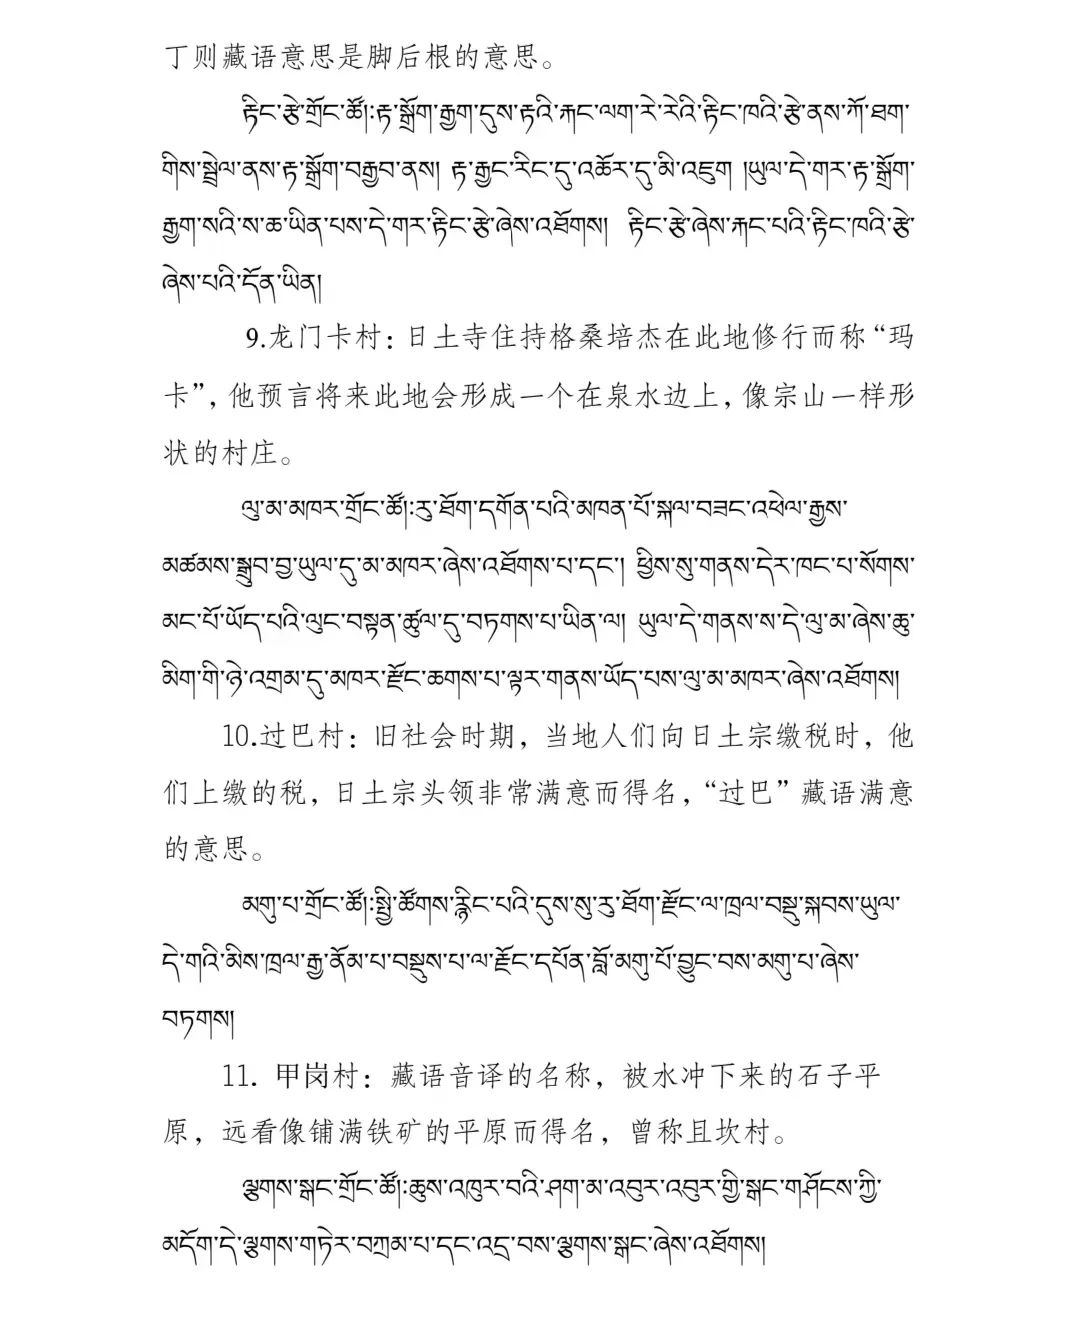 丁则藏语意思是脚后根的意思。
རྟིང་རྩེ་གྲོང་ཚོ།:རྟ་སྒྲོག་རྒྱག་དུས་རྟའི་རྐང་ལག་རེ་རེའི་རྟིང་ཁའི་རྩེ་ནས་ཀོ་ཐག་
གིས་སྦྲེལ་ནས་རྟ་སྒྲོག་བརྒྱབ་ནས། རྟ་རྒྱང་རིང་དུ་འཚོར་དུ་མི་འཇུག །ཡུལ་དེ་གར་རྟ་སྒྲོག་
རྒྱག་སའི་ས་ཆ་ཡིན་པས་དེ་གར་རྟིང་རྩེ་ཞེས་འཐོགས། རྟིང་རྩེ་ཞེས་རྐང་པའི་རྟིང་ཁའི་རྩེ་
ཞེས་པའི་དོན་ཡིན།
9.龙门卡村：日土寺住持格桑培杰在此地修行而称“玛
卡”，他预言将来此地会形成一个在泉水边上，像宗山一样形
状的村庄。
ལུ་མ་མཁར་གྲོང་ཚོ།:རུ་ཐོག་དགོན་པའི་མཁན་པོ་སྐལ་བཟང་འཕེལ་རྒྱས་
མཚམས་སྒྲུབ་བྱ་ཡུལ་དུ་མ་མཁར་ཞེས་འཐོགས་པ་དང་། ཕྱིས་སུ་གནས་དེར་ཁང་པ་སོགས་
མང་པོ་ཡོད་པའི་ལུང་བསྟན་ཚུལ་དུ་བཏགས་པ་ཡིན་ལ། ཡུལ་དེ་གནས་ས་དེ་ལུ་མ་ཞེས་ཆུ་
མིག་གི་ཉེ་འགྲམ་དུ་མཁར་རྫོང་ཆགས་པ་ལྟར་གནས་ཡོད་པས་ལུ་མ་མཁར་ཞེས་འཐོགས།
10.过巴村：旧社会时期，当地人们向日土宗缴税时，他
们上缴的税，日土宗头领非常满意而得名，“过巴”藏语满意
的意思。
མགུ་པ་གྲོང་ཚོ།:སྤྱི་ཚོགས་རྙིང་པའི་དུས་སུ་རུ་ཐོག་རྫོང་ལ་ཁྲལ་བསྡུ་སྐབས་ཡུལ་
དེ་གའི་མིས་ཁྲལ་རྒྱ་ནོམ་པ་བསྡུས་པ་ལ་རྫོང་དཔོན་བློ་མགུ་པོ་བྱུང་བས་མགུ་པ་ཞེས་
བཏགས།
11. 甲岗村：藏语音译的名称，被水冲下来的石子平
原，远看像铺满铁矿的平原而得名，曾称且坎村。
ལྕགས་སྒང་གྲོང་ཚོ།:ཆུས་འཁུར་བའི་ཤག་མ་འབུར་འབུར་གྱི་སྒང་གཤོངས་ཀྱི་
མདོག་དེ་ལྕགས་གཏེར་བཀྲམ་པ་དང་འདྲ་བས་ལྕགས་སྒང་ཞེས་འཐོགས།